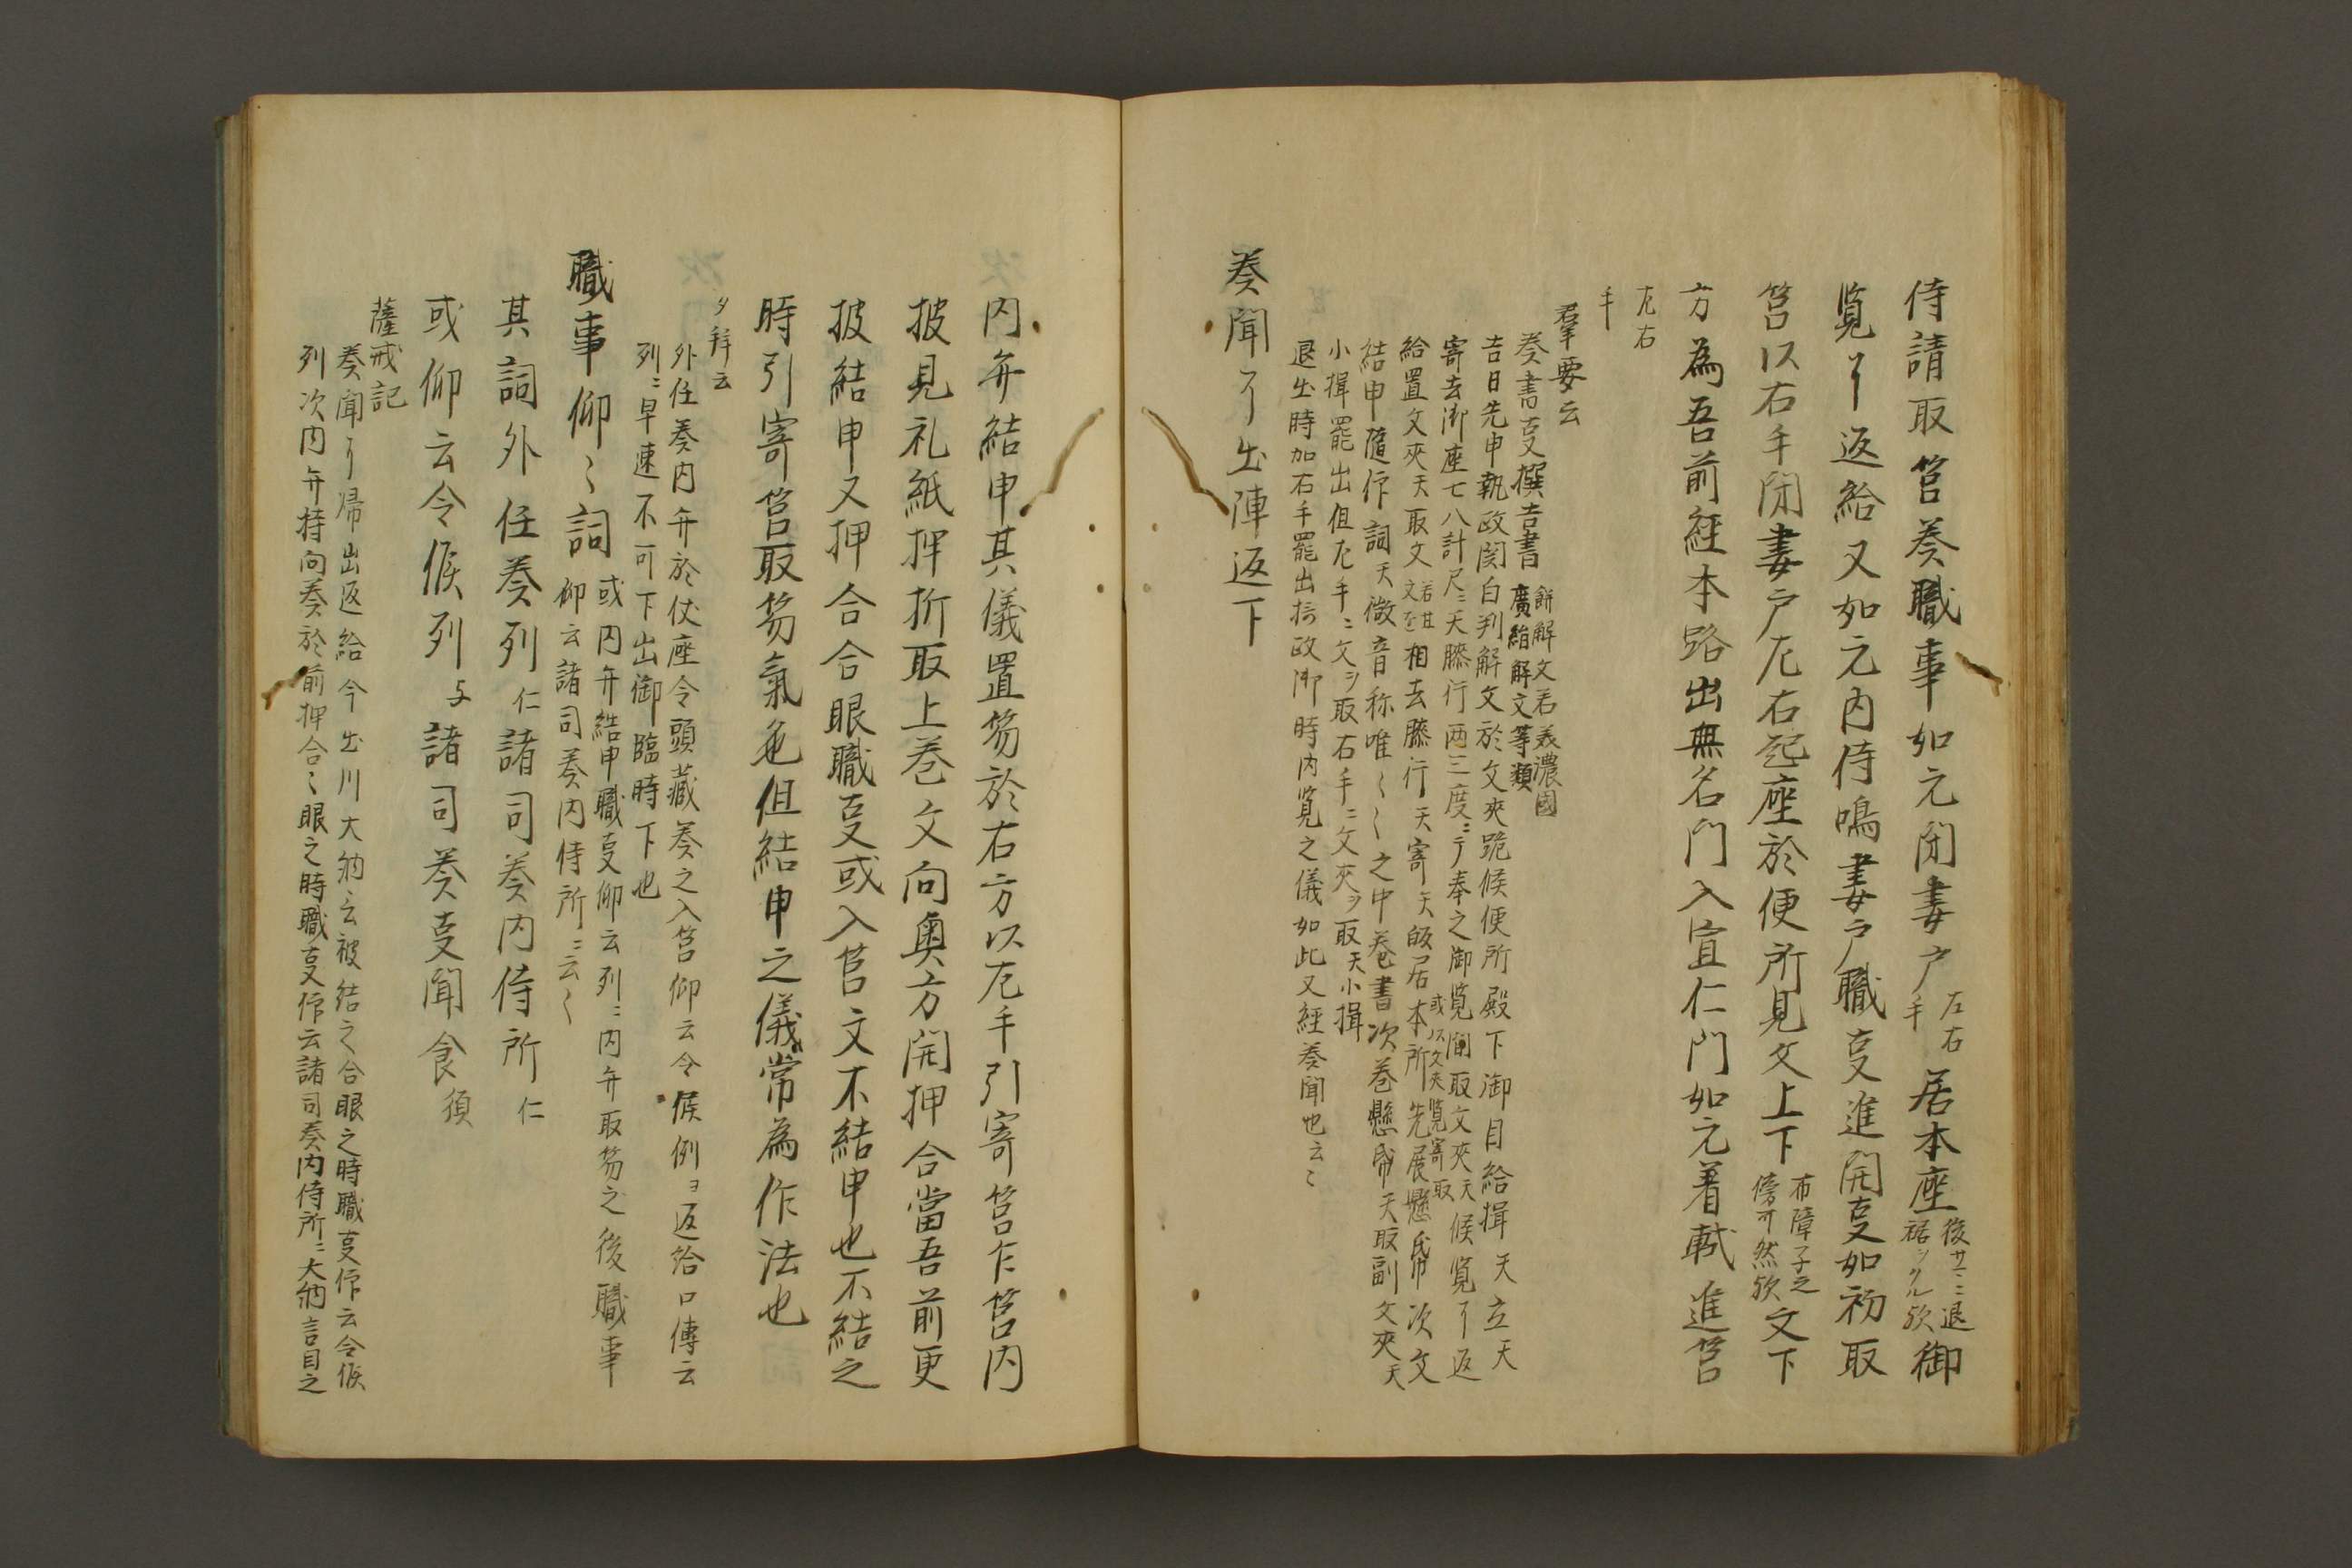 侍請取筥奏職事如元閇妻戸左右手居本座後サマニ退裾シクル歟御
覧了返給又如元内侍鳴妻戸職㕝進開㕝如初取
筥以右手閇妻戸左右起座於便所見文上下布障子之傍可然歟文下
方為吾前経本路出無名門入宣仁門如元着軾進筥
左右
手
羣要云
奏書㕝撰吉書餅解文若美濃國廣絹解文等類
吉日先申執政関白判解文於文夾跪候便所殿下御目給揖天立天
寄去御座七八計尺ニ天膝行両三度ニ了奉之御覧開取文夾天候覧了返
給置文夾天取文相去膝行天寄天皈居本所或以文夾覧寄取先展懸帋次文
結申隨作詞天微音称唯〻〻之中巻書次巻懸帋天取副文夾天
小揖罷出但左手ニ文ヲ取右手ニ文夾ヲ取天小揖
退出時加右手罷出於政御時内覧之儀如此又経奏聞也云〻
奏聞了出陣返下
内弁結申其儀置笏於右方以左手引寄筥乍筥内
披見礼紙押折取上巻文向奥方開押合當吾前更
披結申又押合合眼職㕝或入筥文不結申也不結之
時引寄筥取笏氣色但結申之儀常為作法也
夕拜云
外任奏内弁於仗座令頭藏奏之入筥仰云令候例ヨ返給口傳云
列ニ早速不可下出御臨時下也
職事仰〻詞或内弁結申職㕝仰云列ニ内弁取笏之後職事
仰云諸司奏内侍所ニ云〻
其詞外任奏列仁諸司奏内侍所仁
或仰云令候列与諸司奏㕝聞食須
薩戒記
奏聞了帰出返給今出川大納言被結之合眼之時職㕝作云令候
列次内弁持向奏於前押合〻眼之時職㕝作云諸司奏内侍所ニ大納言目之